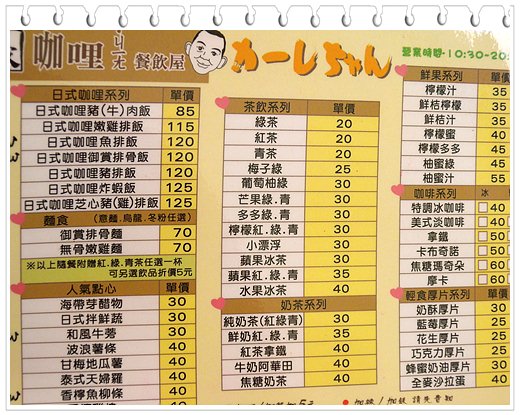 咖哩ㄐㄤ 餐飲屋
かーしちゃん
營業時間-10:30~20
日式咖哩系列 單價
日式咖哩豬(牛)肉飯 85
日式咖哩嫩雞排飯 115
日式咖哩魚排飯 120
日式咖哩御賞排骨飯 120
日式咖哩豬排飯 120
日式咖哩炸蝦飯 125
日式咖哩芝心豬(雞)排飯 125
麵食 (意麵.烏龍.冬粉任選)
御賞排骨麵 70
無骨嫩雞麵 70
※以上隨餐附贈紅.綠.青茶任選一杯
可另選飲品折價5元
人氣點心 單價
海帶芽醋物 30
日式拌鮮蔬 30
和風牛蒡 30
波浪薯條 40
甘梅地瓜薯 40
泰式天婦羅 40
香檸魚柳條 40
茶飲系列 單價
綠茶 20
紅茶 20
青茶 20
梅子綠 25
葡萄柚綠 30
芒果綠.青 30
多多綠.青 30
檸檬紅.綠.青 30
小漂浮 30
蘋果冰茶 30
蘋果紅.綠.青 35
水果冰茶 40
奶茶系列
純奶茶(紅綠青) 30
鮮奶紅.綠.青 35
紅茶拿鐵 40
牛奶阿華田 40
焦糖奶茶 40
鮮果系列 單價
檸檬汁 35
鮮桔檸檬 35
鮮桔汁 35
檸檬蜜 40
檸檬多多 45
柚蜜綠 45
柚蜜汁 55
咖啡系列 冰
特調冰咖啡 40
美式淡咖啡 40
拿鐵 50
卡布奇諾 50
焦糖瑪奇朵 60
摩卡 60
輕食厚片系列 單價
奶酥厚片 30
藍莓厚片 25
花生厚片 25
巧克力厚片 25
蜂蜜奶油厚片 30
全麥沙拉蛋 40